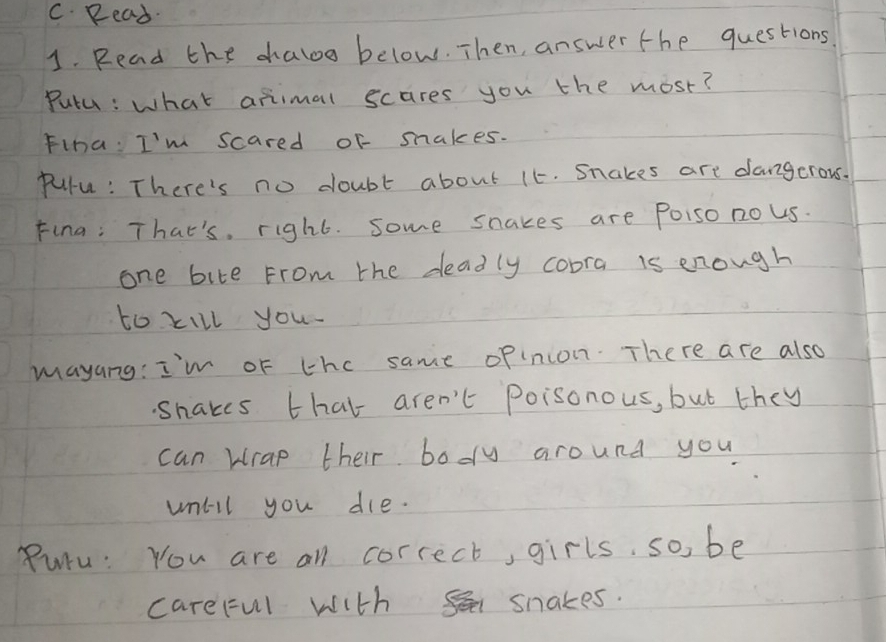 C. Read.
1. Read the dialog below. Then, answer the questions.
Putu : What animal scares you the most?
Fina : I'm scared of snakes.
Putu : There's no doubt about it. Snakes are dangerous.
Fina : That's. right. Some snakes are Poisonous.
one bite From the deadly cobra is enough
to kill you.
Mayang : I'm of the same opinion. There are also
snakes that aren't Poisonous, but they
can wrap their body around you.
until you die.
Putu : You are all correct, girls. so, be
careful with snakes.